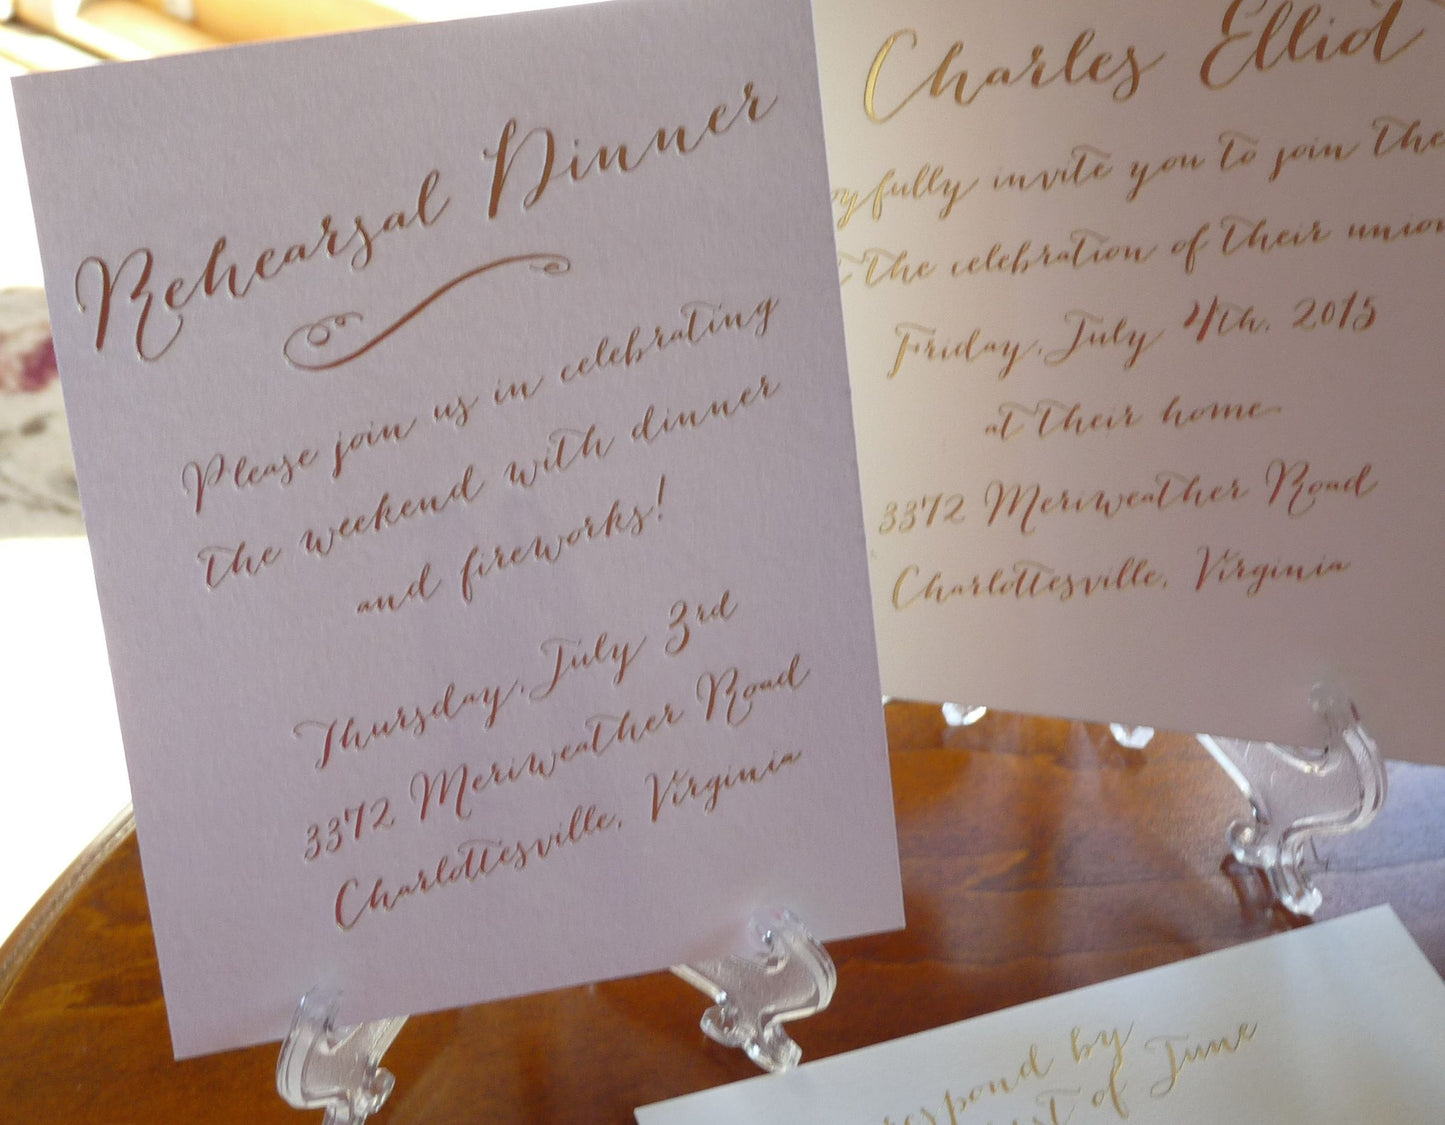 Rehearsal Dinner
Please join us in celebrating
the weekend with dinner
and fireworks!
Thursday, July 3rd
3372 Meriweather Road
Charlottesville, Virginia
Charles Elliot
oyfully invite you to join the
the celebration of their union
Friday, July 4th, 2015
at their home
3372 Meriweather Road
Charlottesville, Virginia
respond by
of June